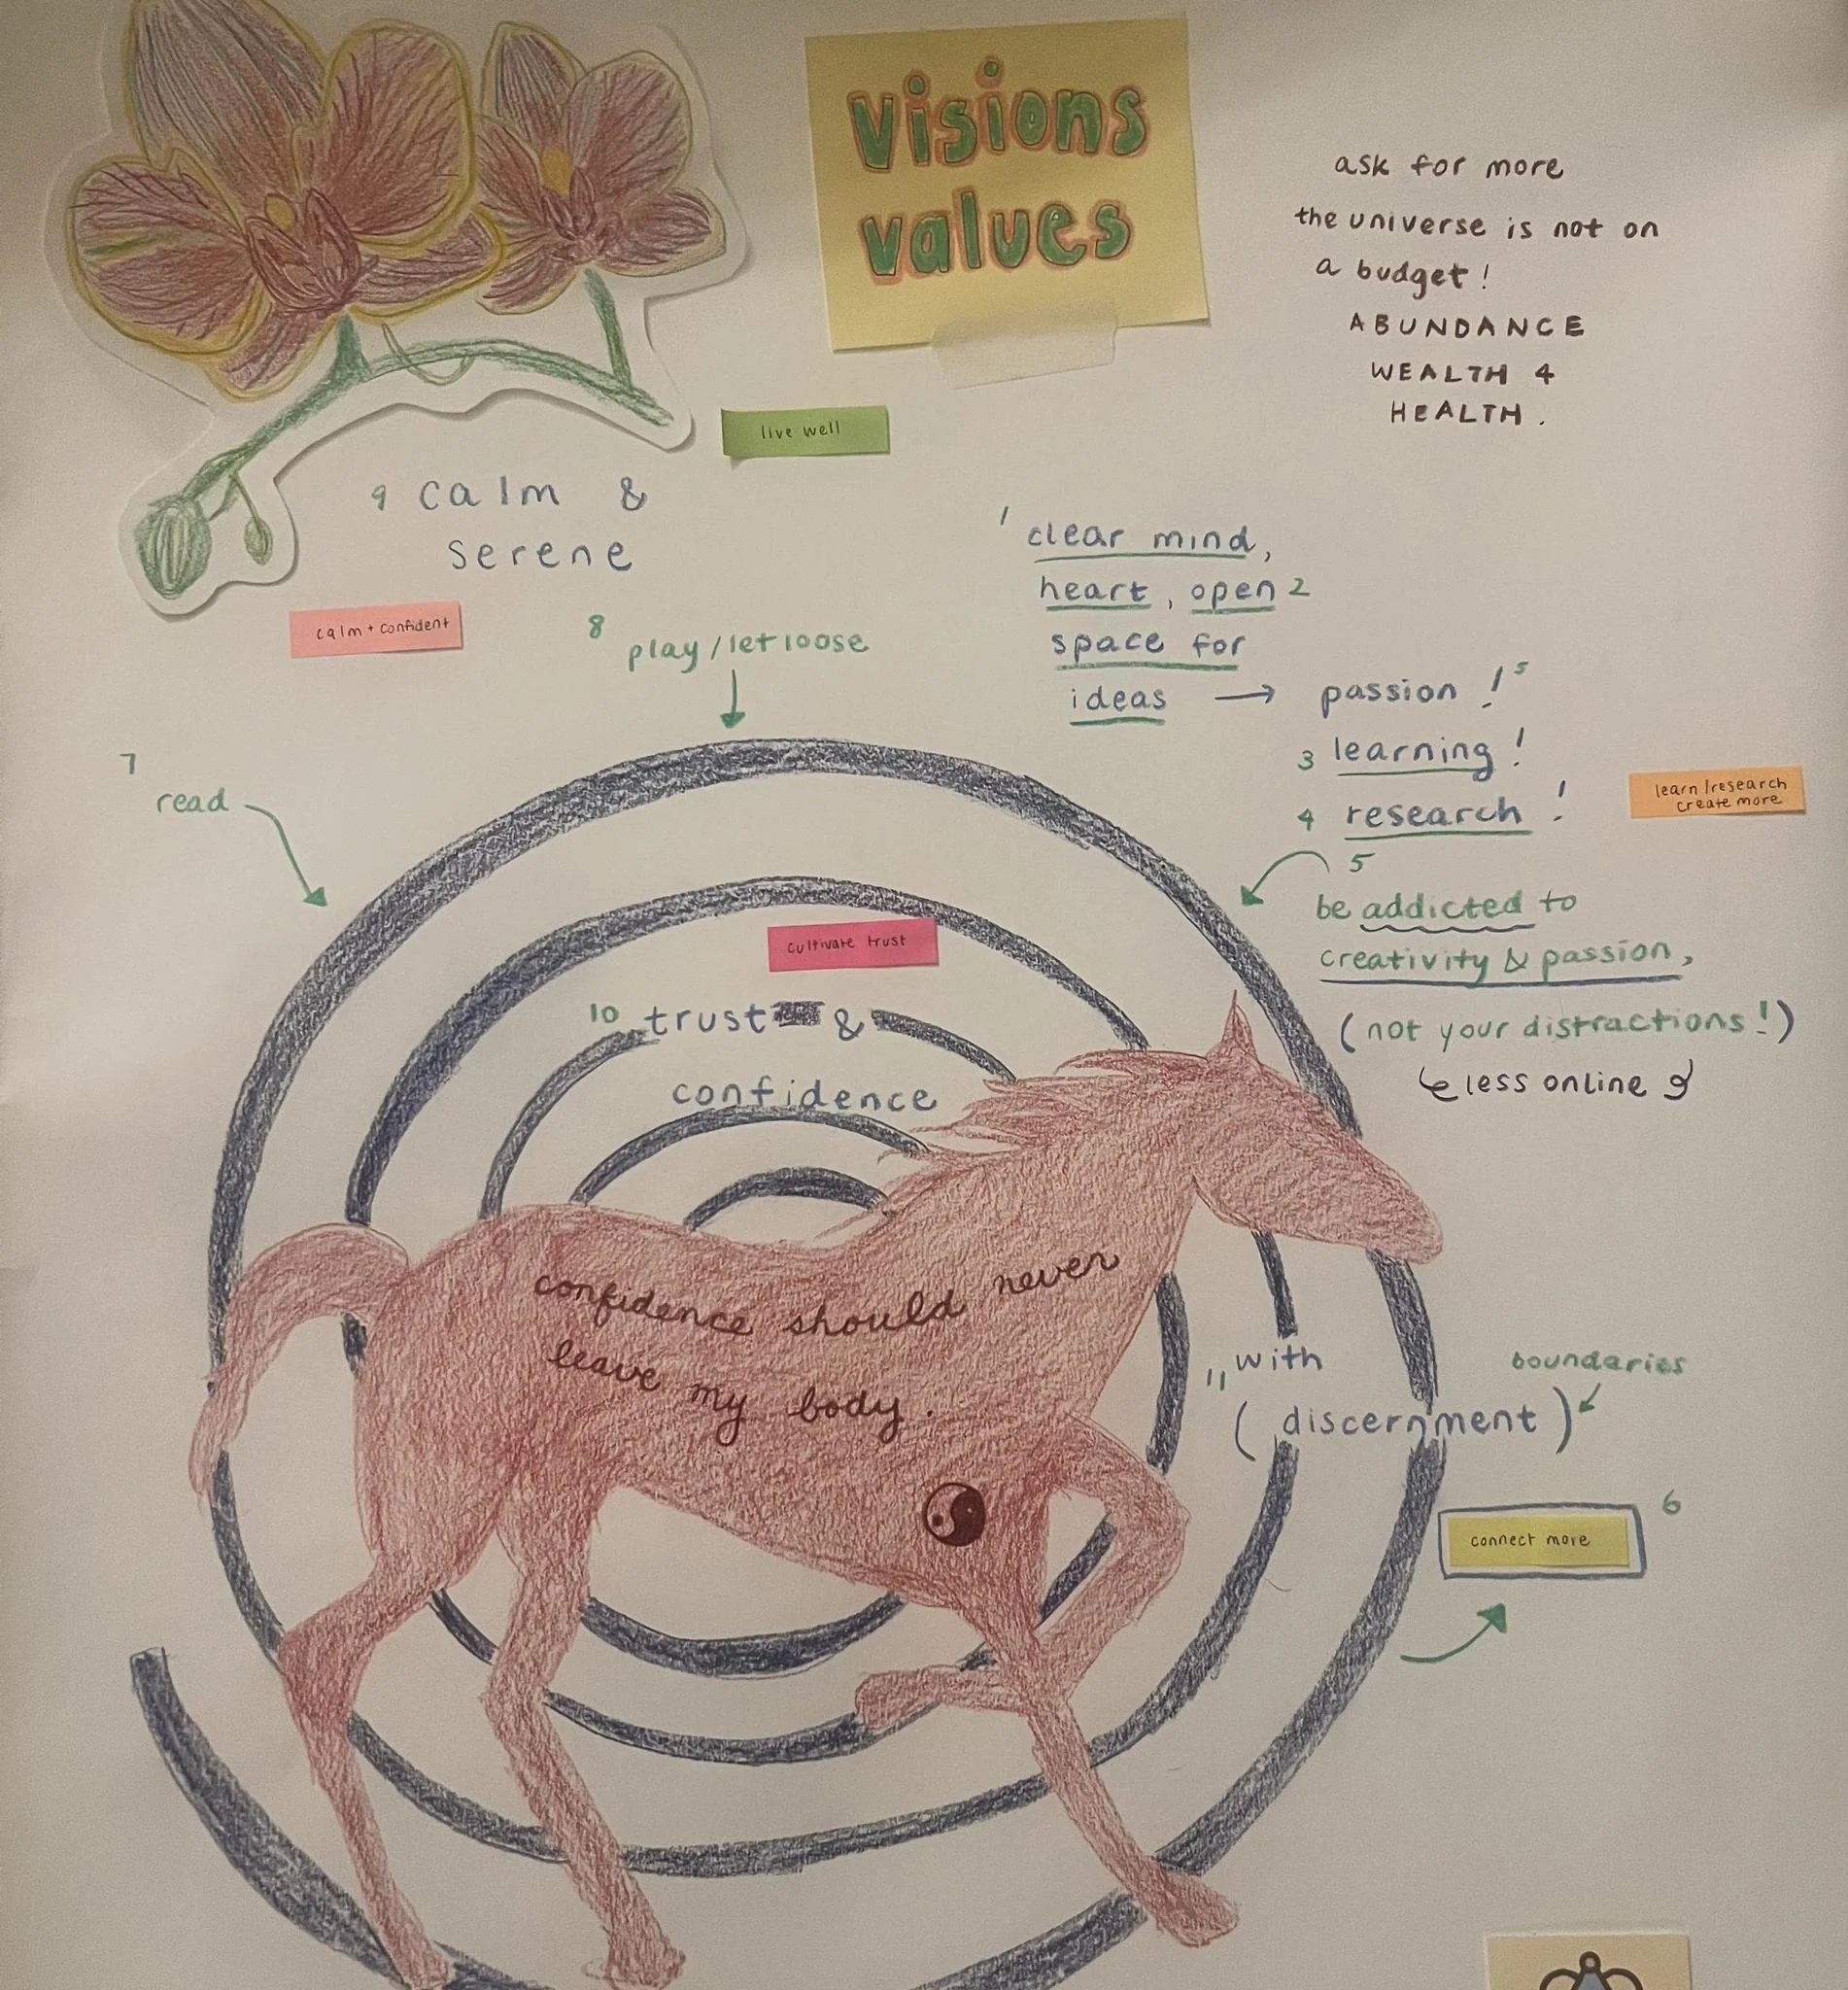 Visions
values
ask for more
the universe is not on
a budget!
ABUNDANCE
WEALTH 4
HEALTH.
live well
9 calm &
serene
calm + confident
1 clear mind,
heart, open 2
space for
ideas → passion! 5
3 learning!
4 research!
learn/research
create more
8
play/let loose
7
read
5
be addicted to
creativity & passion,
(not your distractions!)
less online
cultivate trust
10 trust &
confidence
confidence should never
leave my body.
11 with
(discernment)
boundaries
6
connect more